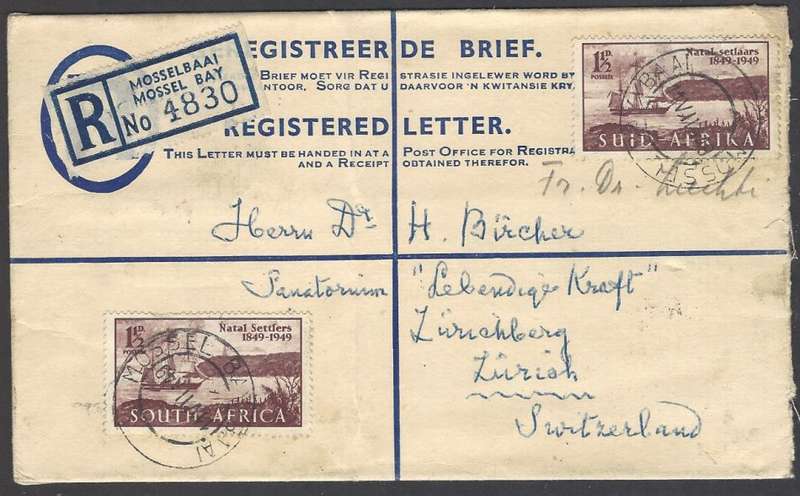 REGISTREERDE BRIEF.
BRIEF MOET VIR REGISTRASIE INGELEWER WORD BY
NTOOR. SORG DAT U DAARVOOR 'N KWITANSIE KRY
REGISTERED LETTER.
THIS LETTER MUST BE HANDED IN AT A POST OFFICE FOR REGISTRA
AND A RECEIPT OBTAINED THEREFOR.
R
MOSSELBAAI
MOSSEL BAY
No 4830
1½D.
POSSEEL
Natal setlaars
1849-1949
SUID-AFRIKA
Fr. Dr.
Herrn Dr. H. Bircher
Sanatorium "Lebendige Kraft"
Zürichberg
Zürich
Switzerland
1½D.
POSTAGE
Natal Settlers
1849-1949
SOUTH AFRICA
MOSSEL BA